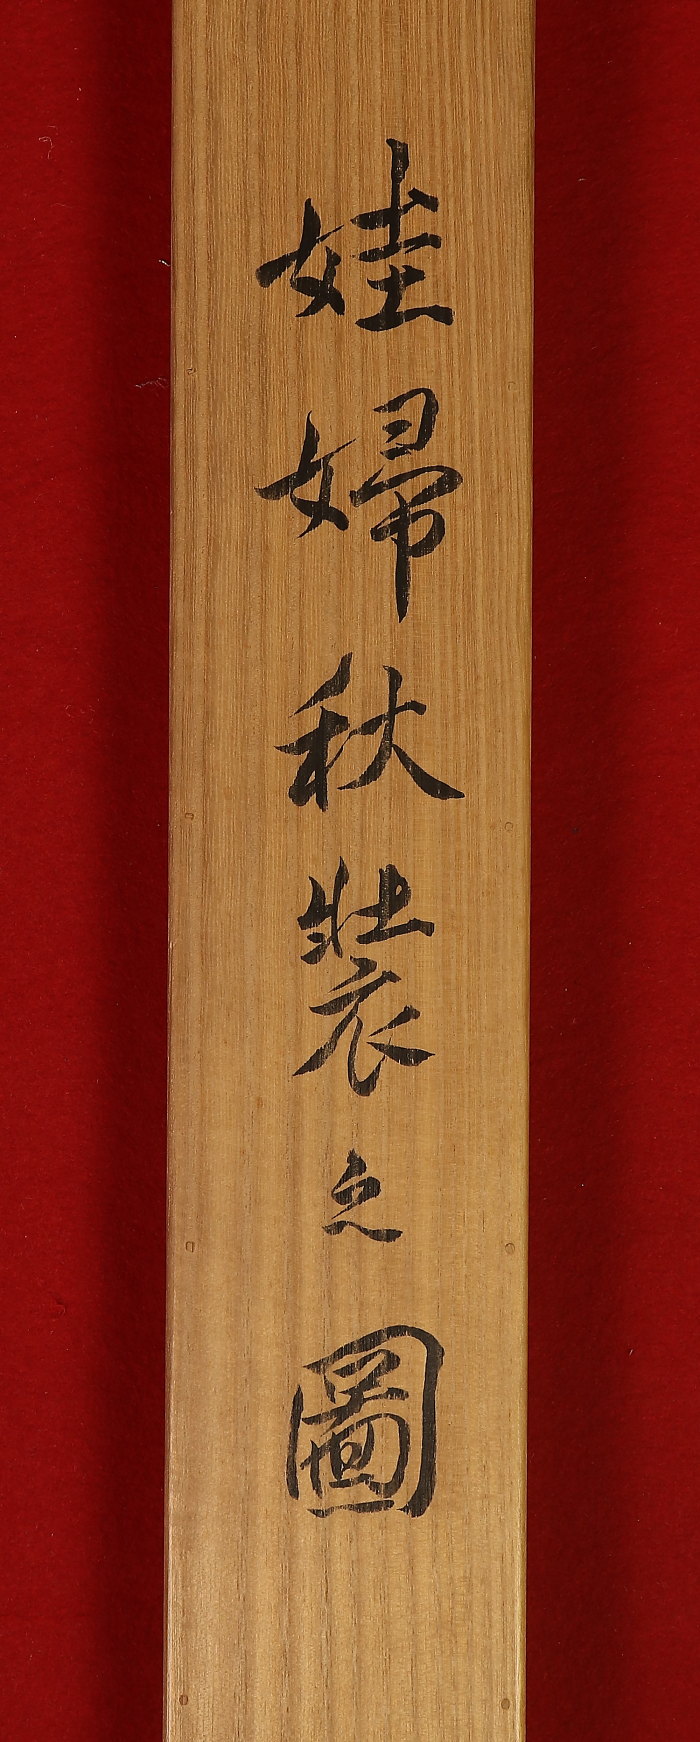 娃婦秋裝之圖